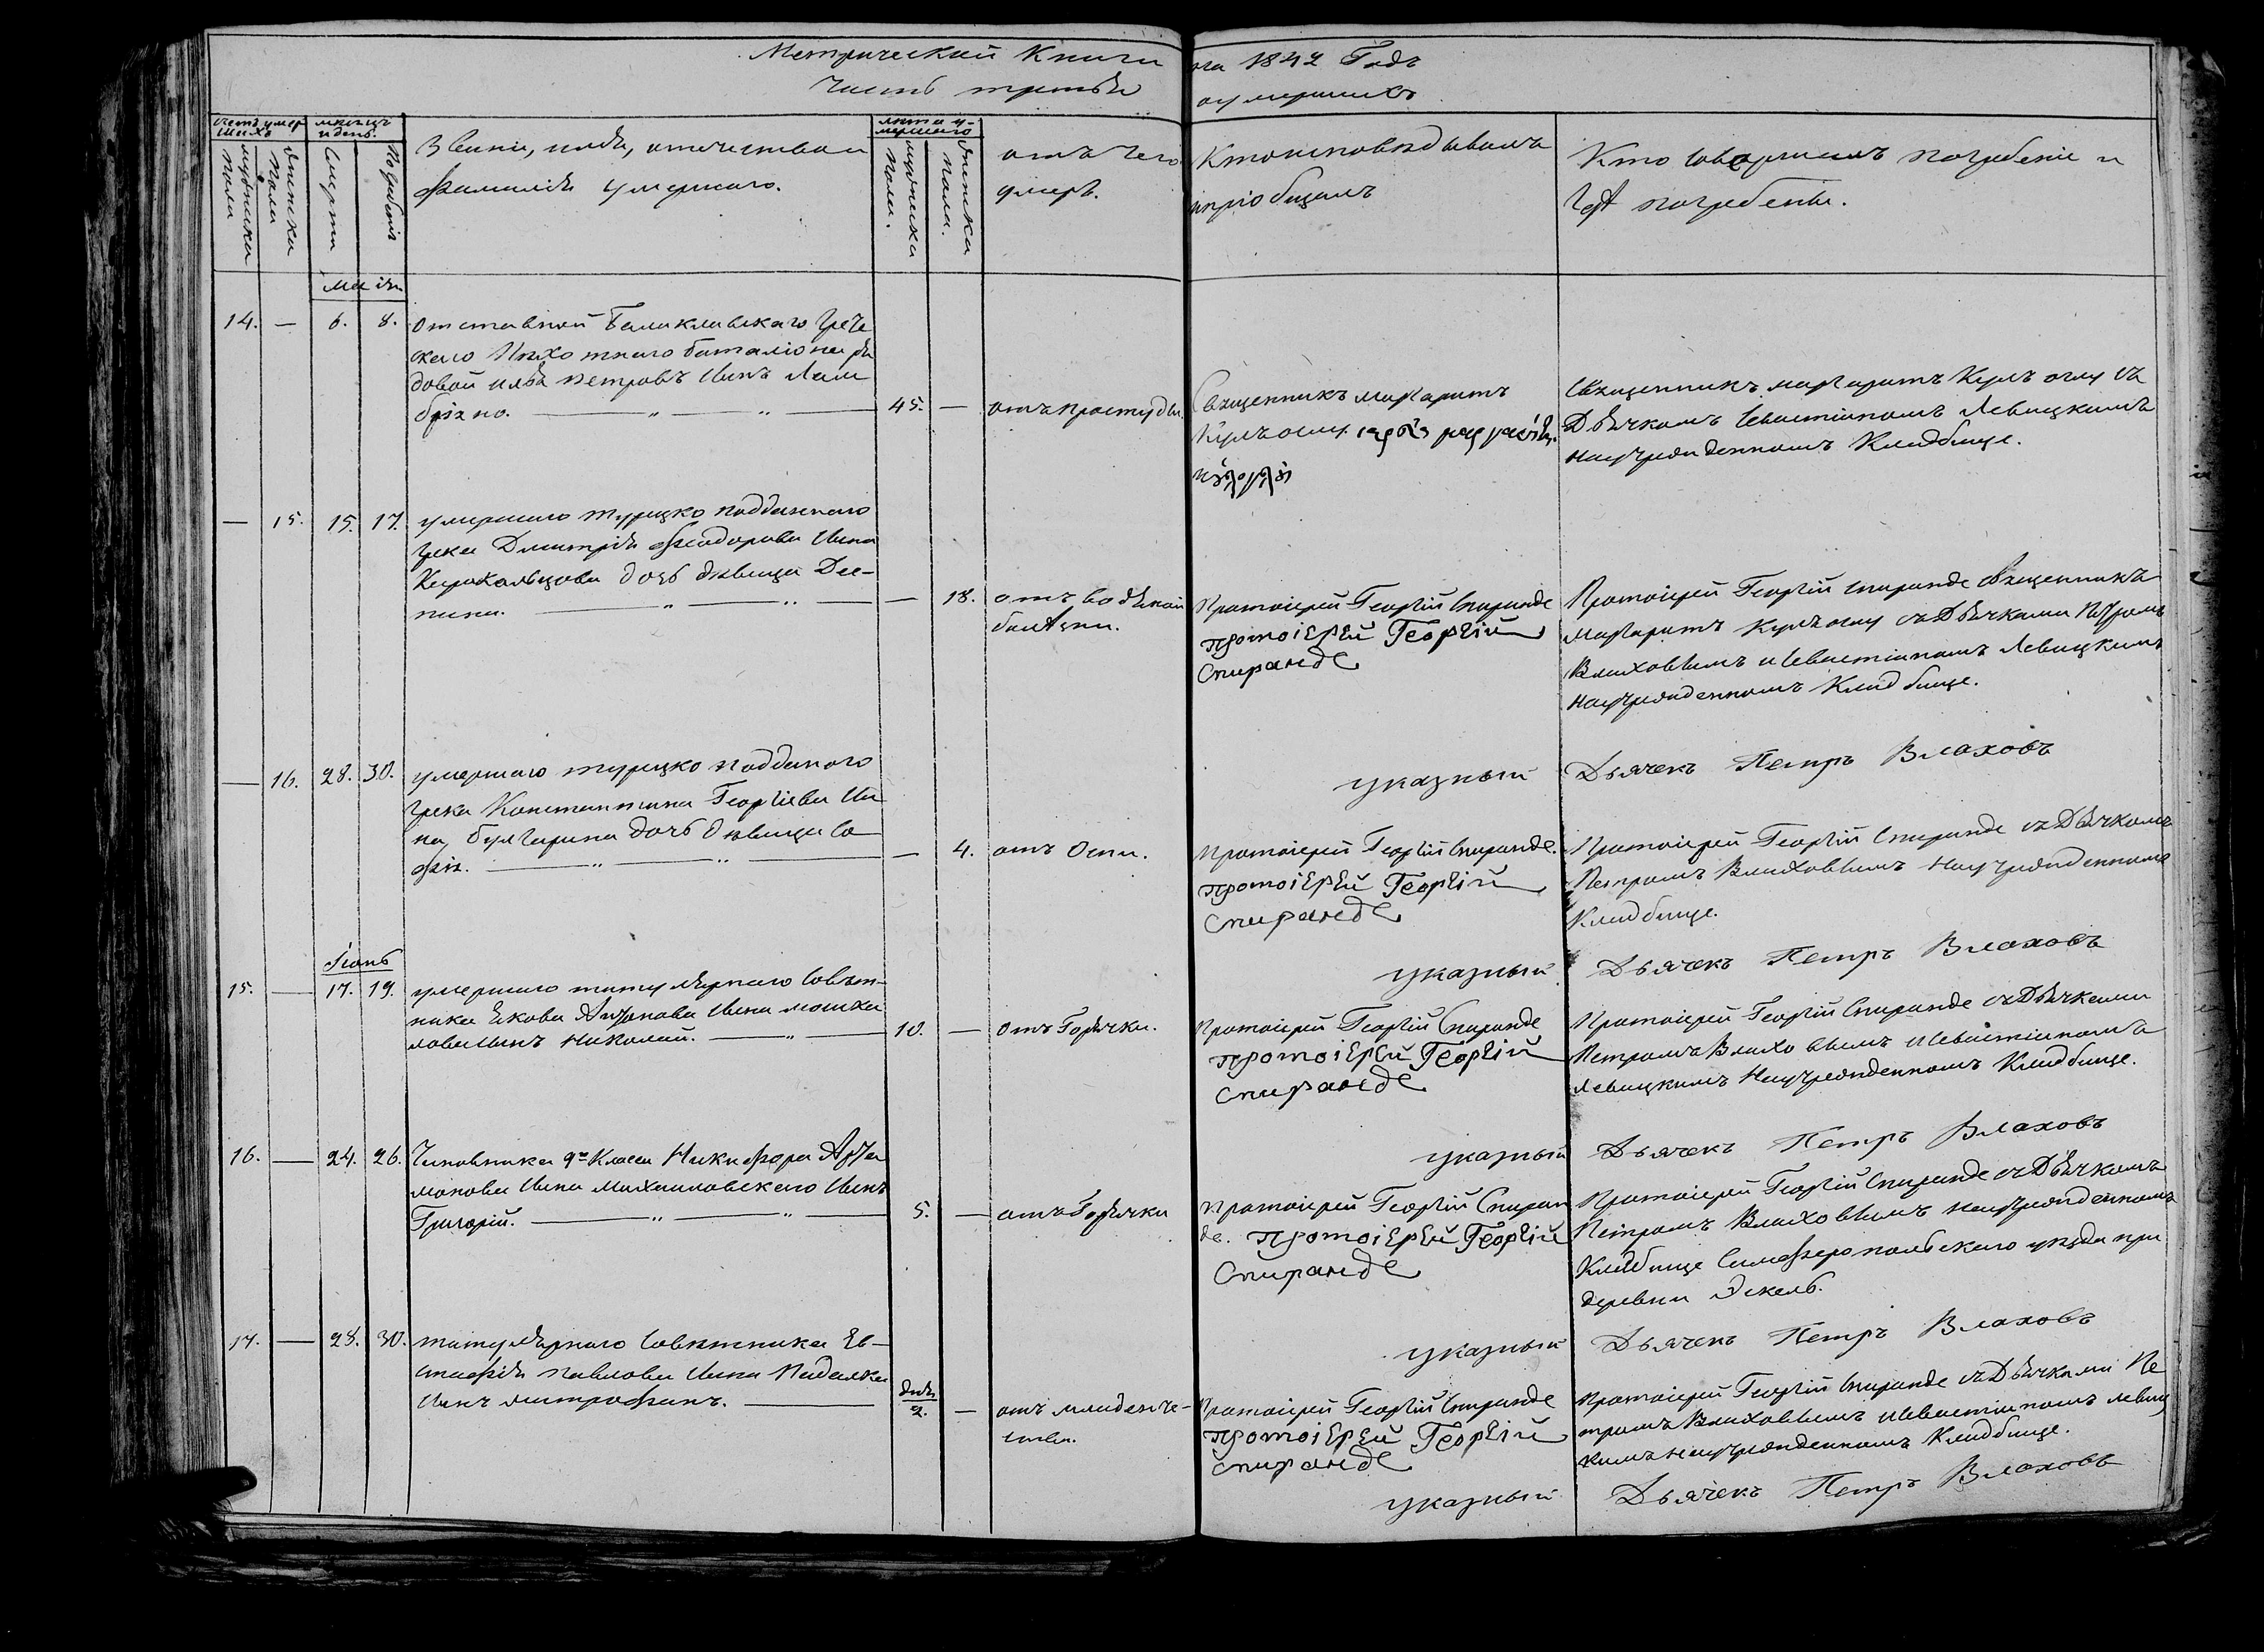 Метрической Книги на 1842 Годъ
Часть третья о умершихъ
счетъ умер
шихъ
мужеска
пола
женска
пола
мѣсяцъ
и день.
Смерти
Погребенія
Званіе, имя, отечество и
фамилія умершаго.
лѣта у-
мершаго
мужеска
пола.
женска
пола.
отъ чего
умеръ.
Кто исповѣдывалъ
и пріобщалъ
Кто совершилъ погребеніе и
гдѣ погребены.
Маія
14. — 6. 8. Отставной Балаклавскаго Грече
скаго Пѣхотнаго баталіона ря
довой илья петровъ сынъ Лам
бріано. 45. — отъ простуды.
Священникъ маргаритъ
Кулъ оглу.
Священникъ маргаритъ Кулъ оглу съ
Дьячкомъ Севастіаномъ Левицкимъ
на учрежденномъ Кладбище.
— 15. 15. 17. умершаго турецко подданнаго
грека Димитрія Феодорова сына
дочь дѣвица Дес-
пина. — 18. отъ водяной
болѣзни.
Протоіерей Георгій Спиранде
протоіерей Георгій
Спиранде
Протоіерей Георгій Спиранде священникъ
маргаритъ кулъ оглу съ Дьячками Петромъ
Влаховымъ и Севастіаномъ Левицкимъ
на учрежденномъ Кладбище.
указный Дьячекъ Петръ Влаховъ
— 16. 28. 30. умершаго турецко подданого
грека Константина Георгіева сы
на, булгарина дочь дѣвица Со
фія. — 4. отъ Оспи.
Протоіерей Георгій Спиранде.
протоіерей Георгій
Спиранде
Протоіерей Георгій Спиранде съ Дьячкомъ
Петромъ Влаховымъ на учрежденномъ
Кладбище.
указный Дьячекъ Петръ Влаховъ
Іюнь
15. — 17. 19. умершаго титулярнаго Совѣт-
ника Якова сына
сынъ Николай. 10. — отъ Горячки.
Протоіерей Георгій Спиранде
протоіерей Георгій
Спиранде
Протоіерей Георгій Спиранде съ Дьячками
Петромъ Влаховымъ и Севастіаномъ
Левицкимъ на учрежденномъ Кладбище.
указный Дьячекъ Петръ Влаховъ
16. — 24. 26. Чиновника 9го Класса Никифора Арта
монова сына Михаиловскаго сынъ
Григорій. 5. — отъ Горячки
Протоіерей Георгій Спиран
де. протоіерей Георгій
Спиранде
Протоіерей Георгій Спиранде съ Дьячкомъ
Петромъ Влаховымъ на учрежденномъ
Кладбище Симферопольскаго уѣзда при
деревни
указный Дьячекъ Петръ Влаховъ
17. — 28. 30. титулярнаго Совѣтника Ев-
стафія павлова сына
сынъ митрофанъ. дня
2. — отъ младенче-
ства.
Протоіерей Георгій Спиранде
протоіерей Георгій
Спиранде
Протоіерей Георгій Спиранде съ Дьячками Пе
тромъ Влаховымъ и Севастіаномъ левиц
кимъ на учрежденномъ Кладбище.
указный Дьячекъ Петръ Влаховъ